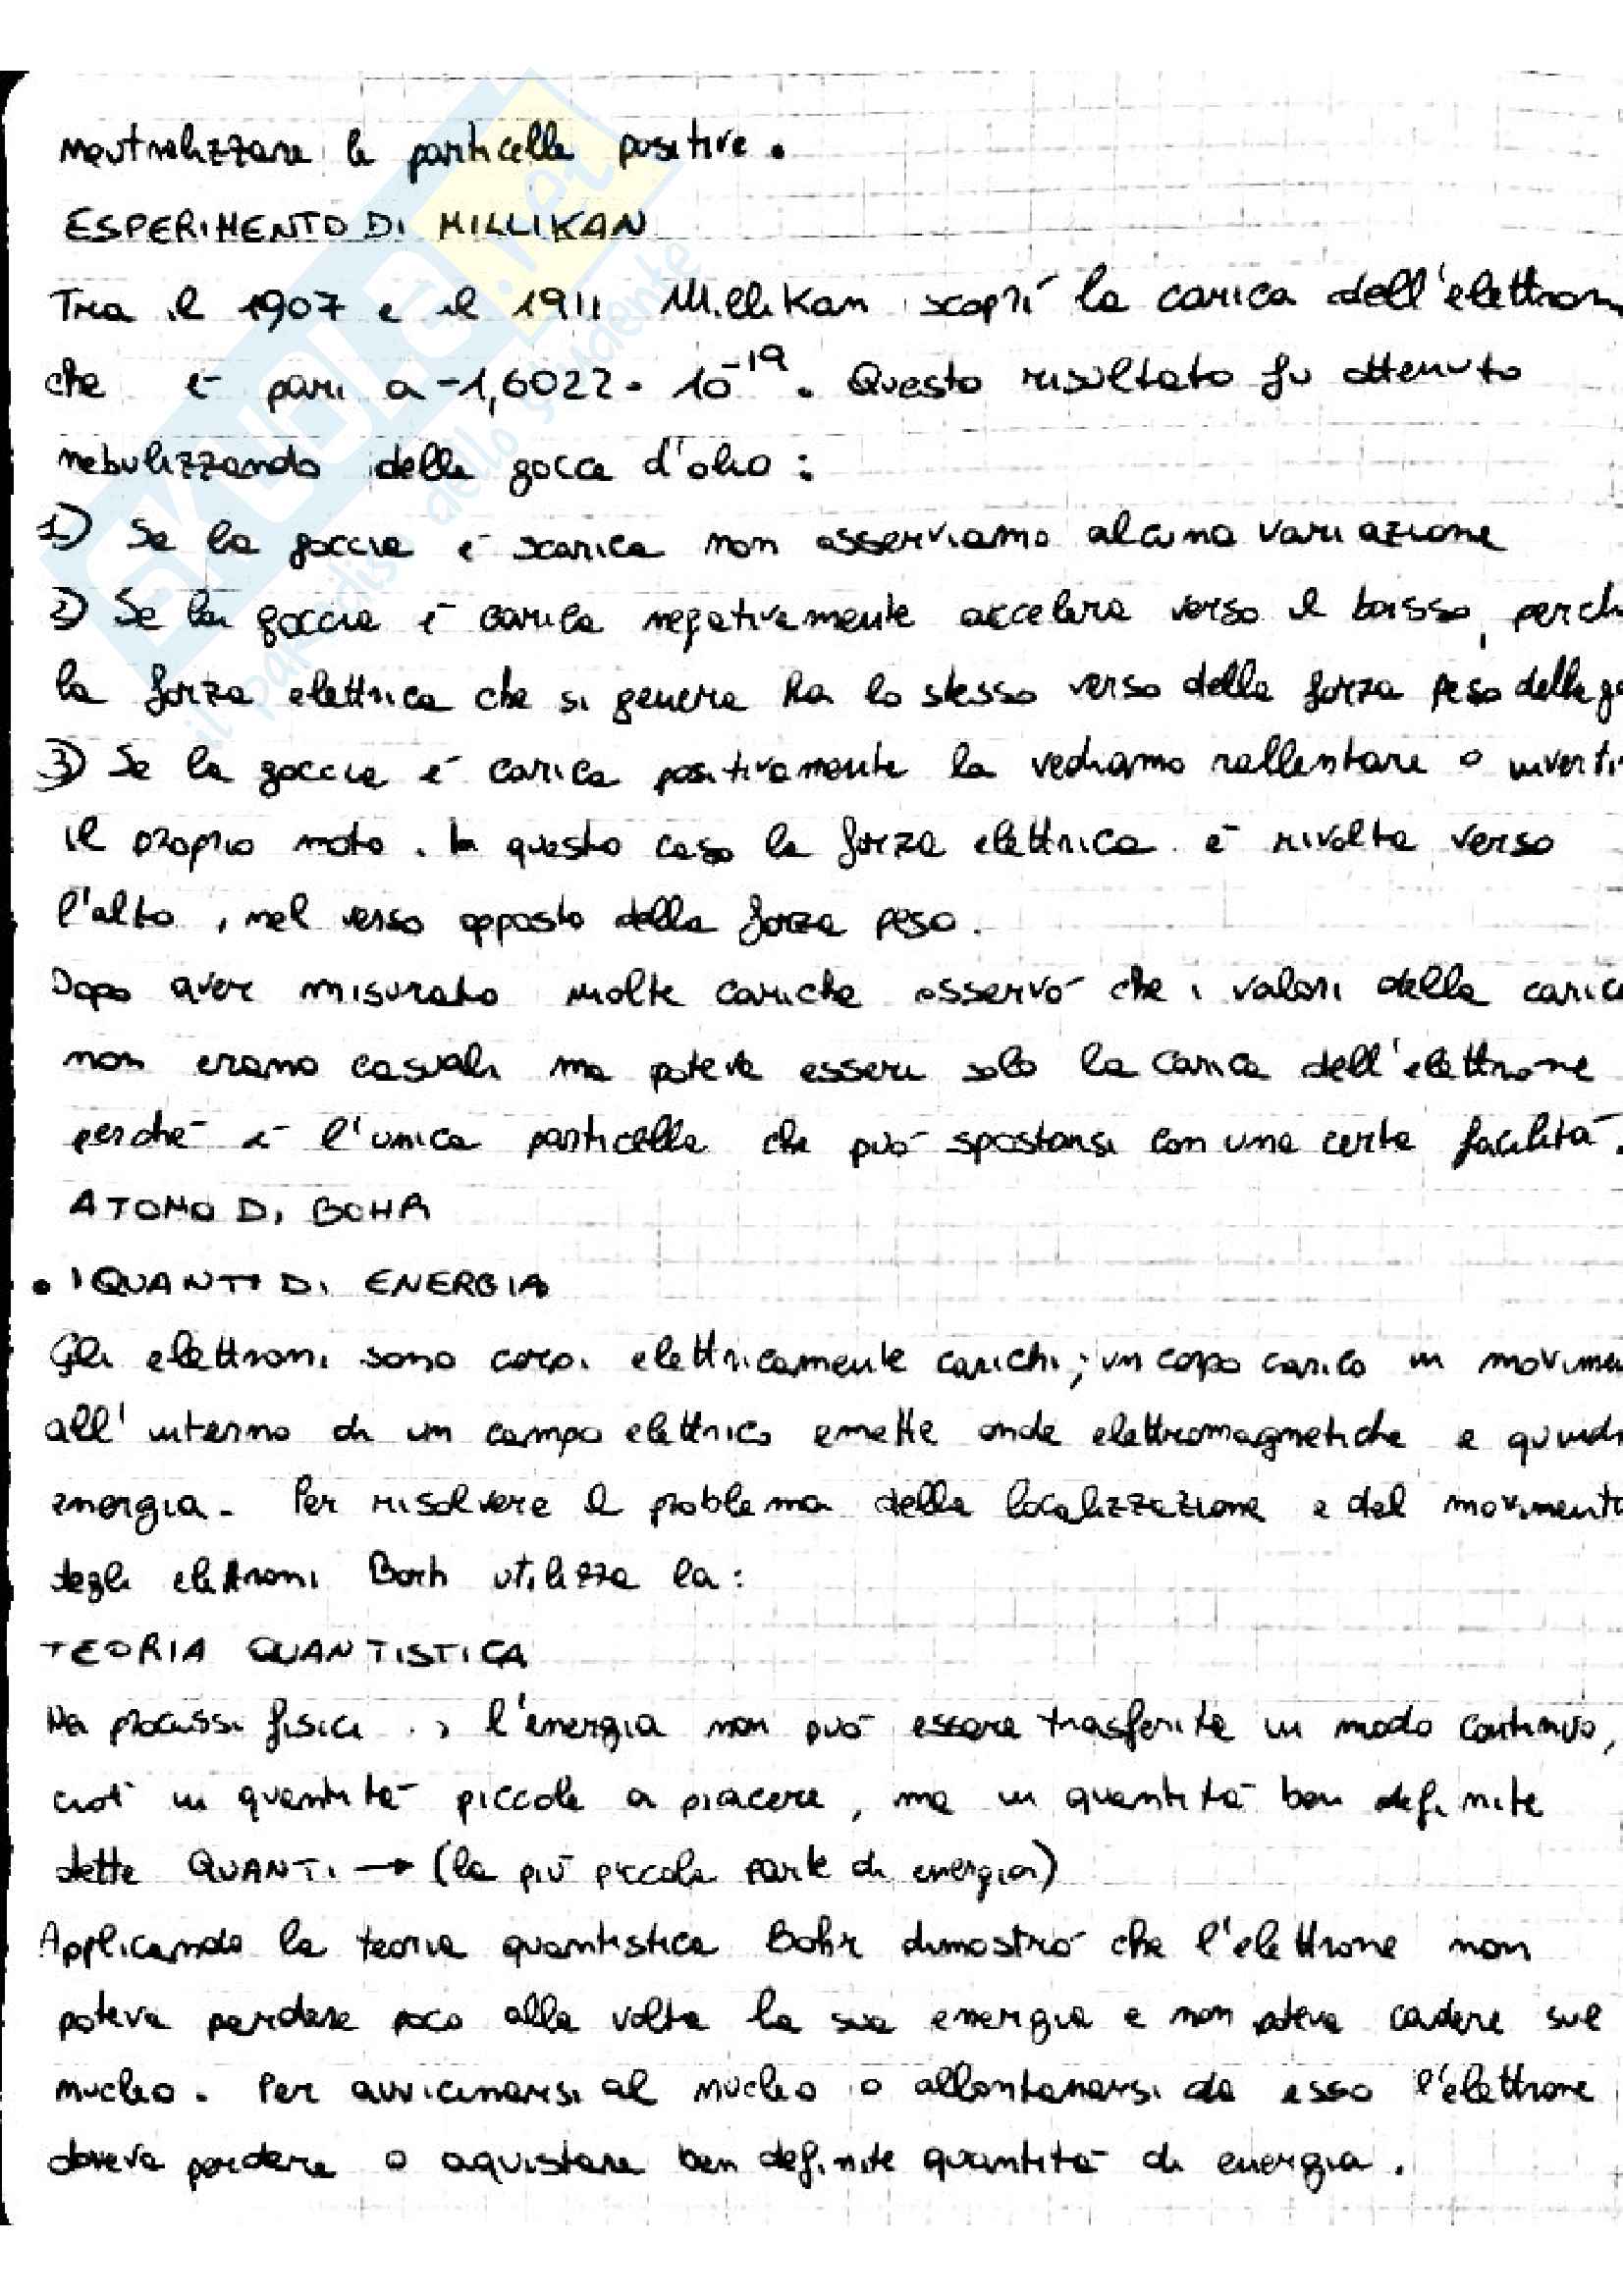 neutralizzare le particelle positive.
ESPERIMENTO DI MILLIKAN
Tra il 1907 e il 1911 Millikan scoprì la carica dell'elettron
che è pari a -1,6022 · 10⁻¹⁹. Questo risultato fu ottenuto
nebulizzando delle gocce d'olio :
1) Se la goccia è scarica non osserviamo alcuna variazione
2) Se la goccia è carica negativamente accelera verso il basso, perch
la forza elettrica che si genera ha lo stesso verso della forza peso della go
3) Se la goccia è carica positivamente la vediamo rallentare o inverti
il proprio moto. In questo caso la forza elettrica è rivolta verso
l'alto, nel verso opposto della forza peso.
Dopo aver misurato molte cariche osservò che i valori della caric
non erano casuali ma poteva essere solo la carica dell'elettrone
perché è l'unica particella che può spostarsi con una certa facilità.
ATOMO DI BOHR
• I QUANTI DI ENERGIA
Gli elettroni sono corpi elettricamente carichi; un corpo carico in movimen
all'interno di un campo elettrico emette onde elettromagnetiche e quindi
energia. Per risolvere il problema della localizzazione e del movimento
degli elettroni Borh utilizza la:
TEORIA QUANTISTICA
processi fisici l'energia non può essere trasferita in modo continuo,
cioè in quantità piccole a piacere, ma in quantità ben definite
dette QUANTI → (la più piccola parte di energia)
Applicando la teoria quantistica Bohr dimostrò che l'elettrone non
poteva perdere poco alla volta la sua energia e non poteva cadere sul
nucleo. Per avvicinarsi al nucleo o allontanarsi da esso l'elettrone
doveva perdere o aquistare ben definite quantità di energia.
SKUOLA.net
il paradiso dello studente